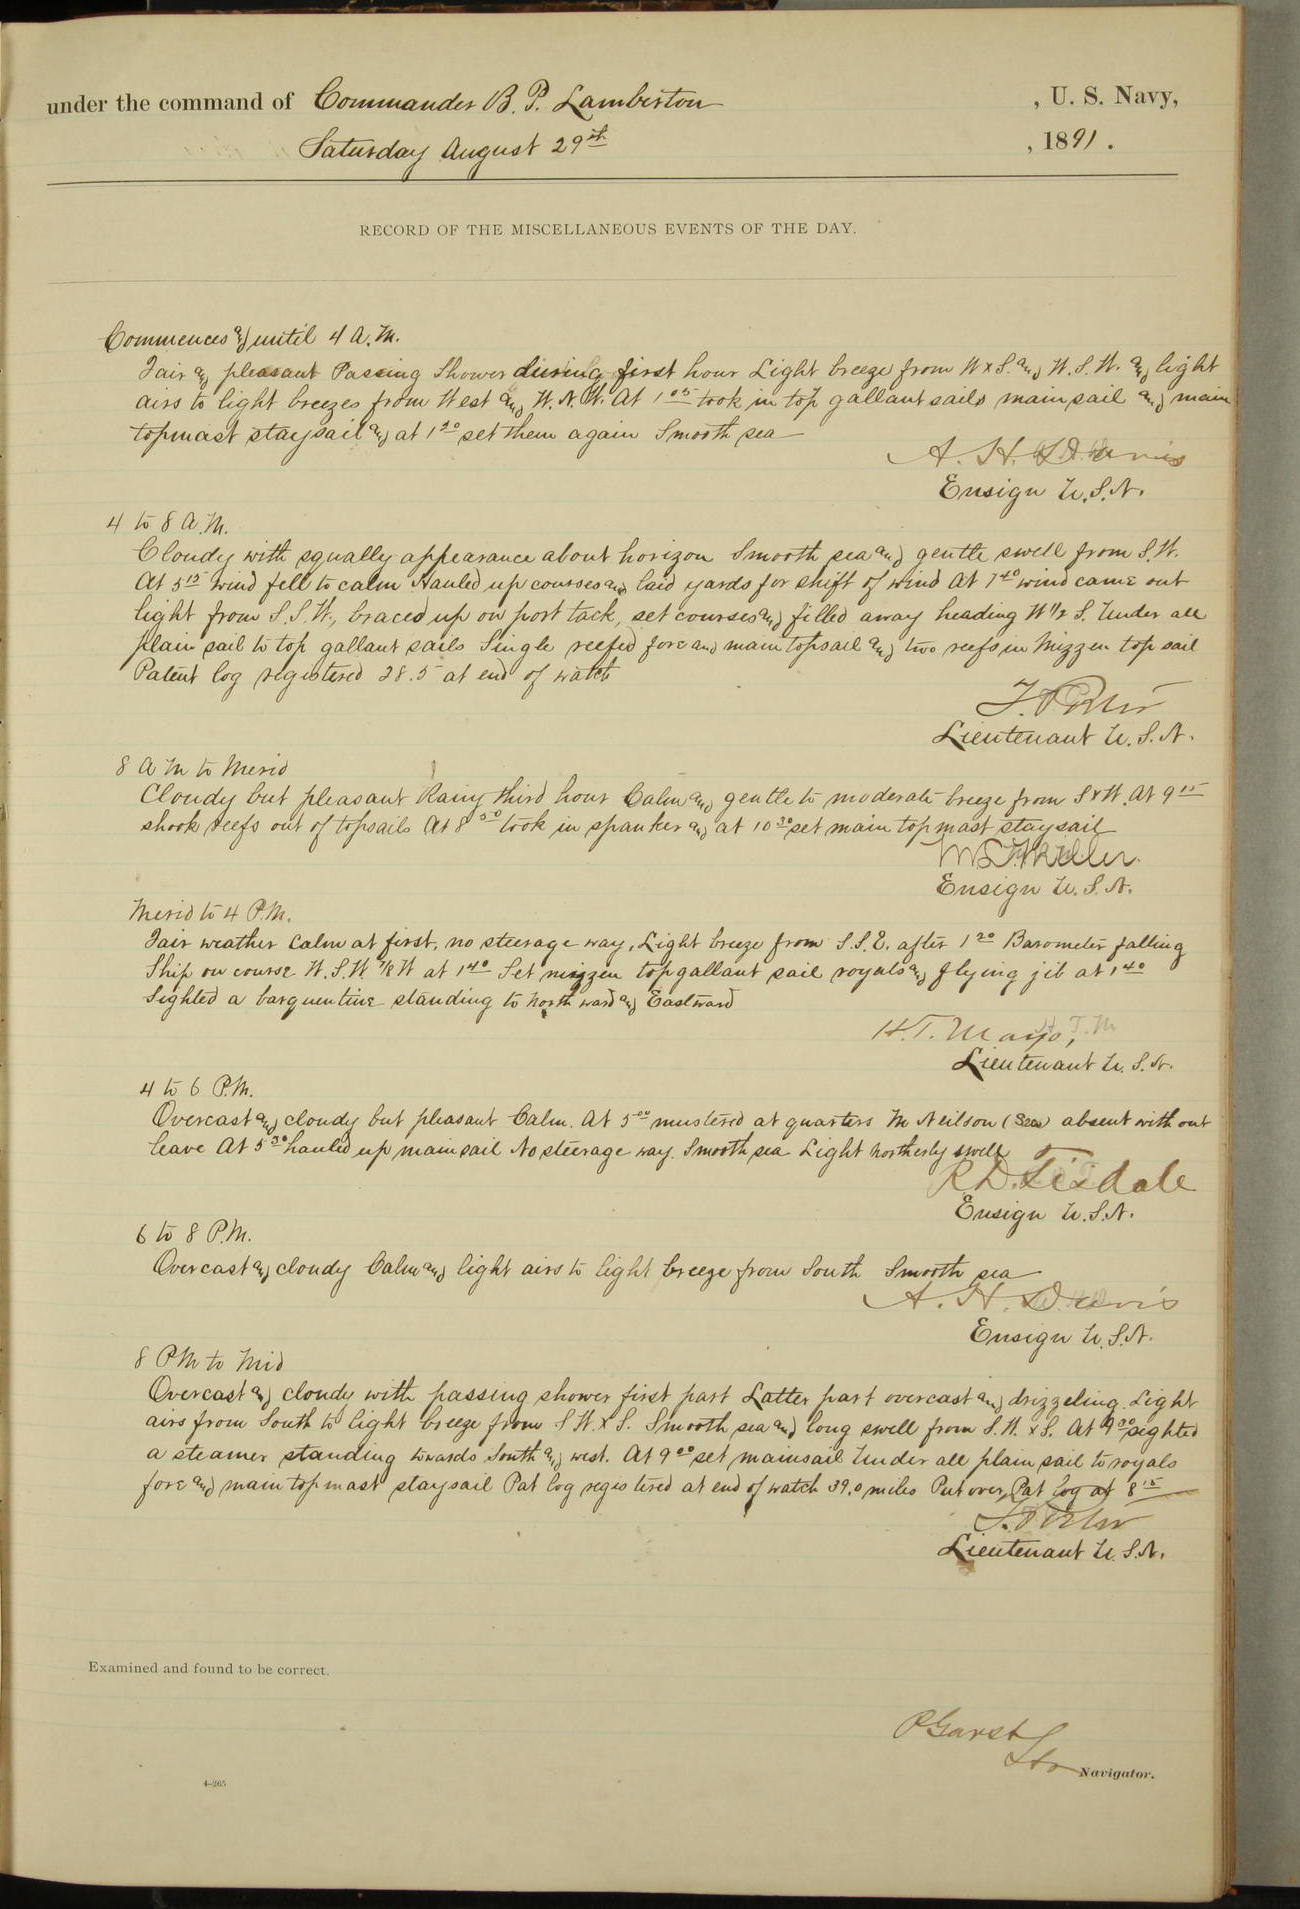 under the command of Commander B. P. Lamberton , U. S. Navy,
Saturday August 29th , 1891.
RECORD OF THE MISCELLANEOUS EVENTS OF THE DAY.
Commences and until 4 A.M.
Fair and pleasant Passing Shower during first hour Light breeze from W x S. and W.S.W. and light
airs to light breezes from West and W.N.W. At 1 05 took in top gallant sails mainsail and main
topmast staysail and at 1 20 set them again Smooth sea
A. H. Davis
Ensign U.S.N.
4 to 8 A.M.
Cloudy with squally appearance about horizon Smooth sea and gentle swell from S.W.
At 5 15 wind fell to calm Hauled up courses and laid yards for shift of wind At 7 40 wind came out
light from S.S.W., braced up on port tack, set courses and filled away heading W 1/2 S. Under all
plain sail to top gallant sails Single reefed fore and main topsail and two reefs in Mizzen top sail
Patent log registered 28.5 at end of watch
Lieutenant U.S.N.
8 A M to Merid
Cloudy but pleasant Rainy third hour Calm and gentle to moderate breeze from S & W. At 9 15
shook reefs out of topsails At 8 50 took in spanker and at 10 30 set main topmast staysail
Miller
Ensign U.S.N.
Merid to 4 P.M.
Fair weather Calm at first, no steerage way, Light breeze from S.S.E. after 1 20 Barometer falling
Ship on course W.S.W 7/8 W at 1 40 Set mizzen topgallant sail royals and flying jib at 1 40
Sighted a barquentine standing to North ward and Eastward
H.T. Mayo, H.T.M
Lieutenant U.S.N.
4 to 6 P.M.
Overcast and cloudy but pleasant Calm. At 5 00 mustered at quarters M Neilson (Sea) absent with out
leave At 5 30 hauled up mainsail No steerage way. Smooth sea Light northerly swell
R D. Tisdale
Ensign U.S.N.
6 to 8 P.M.
Overcast and cloudy Calm and light airs to light breeze from South Smooth sea
A. H. Davis
Ensign U.S.N.
8 PM to Mid
Overcast and cloudy with passing shower first part Latter part overcast and drizzeling. Light
airs from South to light breeze from S W. x S. Smooth sea and long swell from S.W. x S. At 9 30 sighted
a steamer standing towards South and west. At 9 00 set mainsail Under all plain sail to royals
fore and main topmast staysail Pat log registered at end of watch 39.0 miles Put over Pat log at 8 15
Lieutenant U.S.N.
Examined and found to be correct.
P Garst
Navigator.
4-265